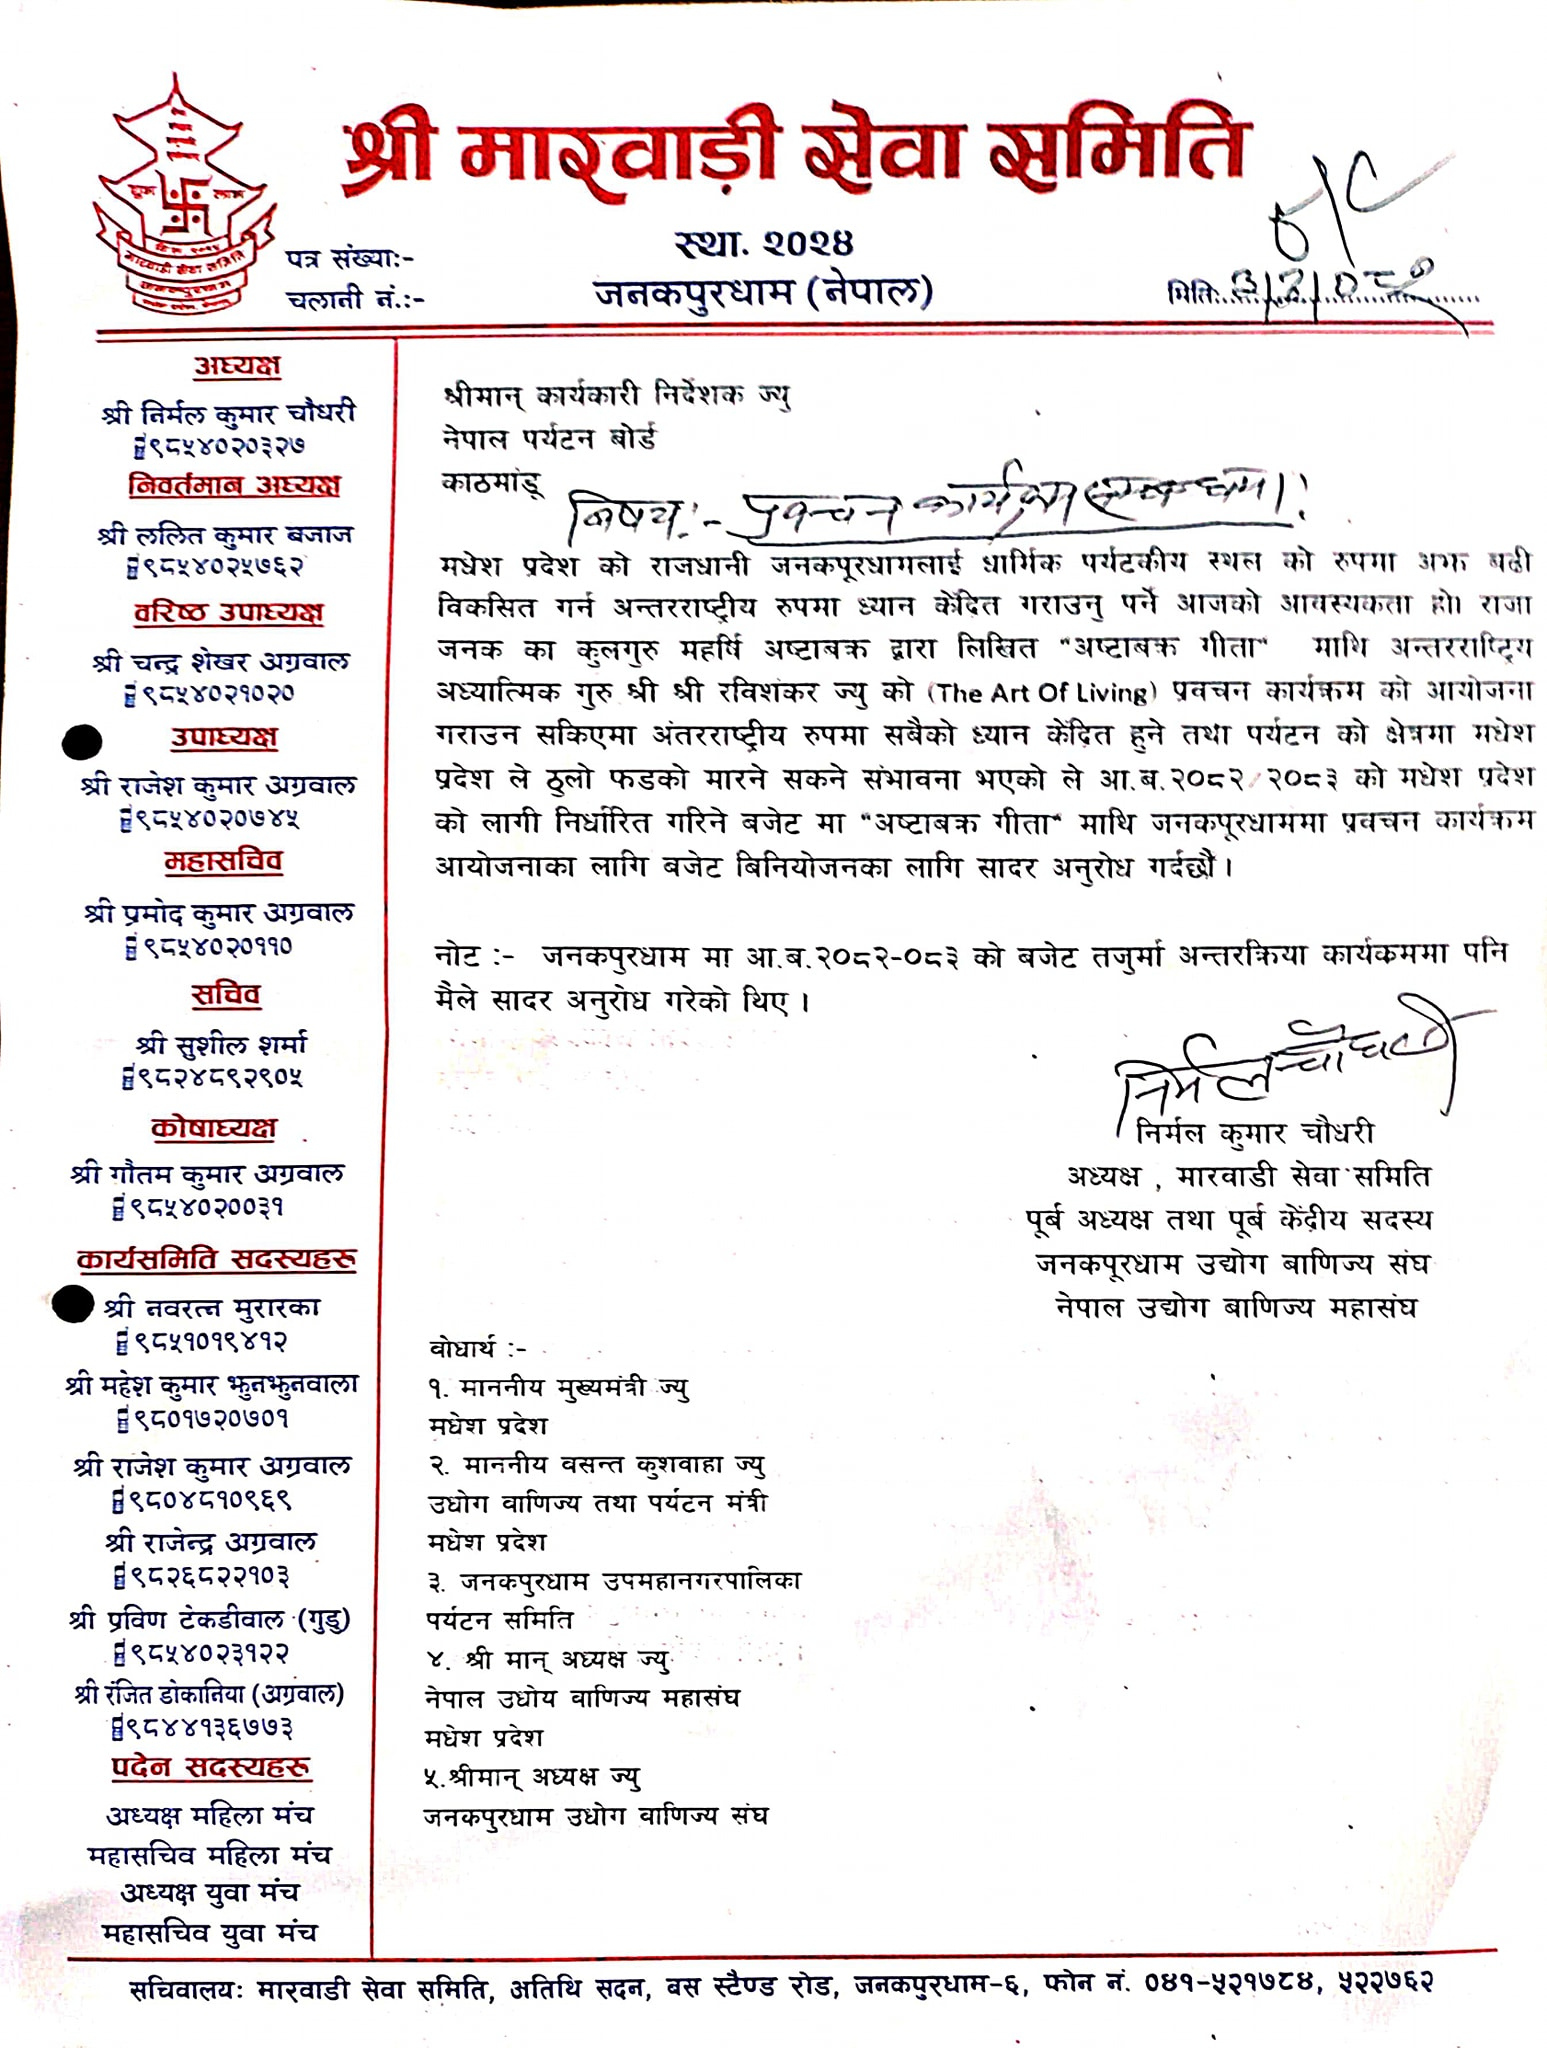 श्री मारवाडी सेवा समिति
स्था. २०२४
जनकपुरधाम (नेपाल)
पत्र संख्याः-
चलानी नं.:-
मितिः
अध्यक्ष
श्री निर्मल कुमार चौधरी
९८५४०२०३२७
निवर्तमान अध्यक्ष
श्री ललित कुमार बजाज
९८५४०२५७६२
वरिष्ठ उपाध्यक्ष
श्री चन्द्र शेखर अग्रवाल
९८५४०२१०२०
उपाध्यक्ष
श्री राजेश कुमार अग्रवाल
९८५४०२०७४५
महासचिव
श्री प्रमोद कुमार अग्रवाल
९८५४०२०११०
सचिव
श्री सुशील शर्मा
९८२४८९२९०५
कोषाध्यक्ष
श्री गौतम कुमार अग्रवाल
९८५४०२००३१
कार्यसमिति सदस्यहरु
श्री नवरत्न मुरारका
९८५१०१९४१२
श्री महेश कुमार झुनझुनवाला
९८०१७२०७०१
श्री राजेश कुमार अग्रवाल
९८०४८१०९६९
श्री राजेन्द्र अग्रवाल
९८२६८२२१०३
श्री प्रविण टेकडीवाल (गुडु)
९८५४०२३१२२
श्री रंजित डोकानिया (अग्रवाल)
९८४४१३६७७३
पदेन सदस्यहरु
अध्यक्ष महिला मंच
महासचिव महिला मंच
अध्यक्ष युवा मंच
महासचिव युवा मंच
श्रीमान् कार्यकारी निर्देशक ज्यु
नेपाल पर्यटन बोर्ड
काठमांडू
विषय:- प्रवचन कार्यक्रम सम्बन्धमा।
मधेश प्रदेश को राजधानी जनकपूरधामलाई धार्मिक पर्यटकीय स्थल को रुपमा अझ बढी
विकसित गर्न अन्तरराष्ट्रीय रुपमा ध्यान केंदित गराउनु पर्ने आजको आवस्यकता हो। राजा
जनक का कुलगुरु महर्षि अष्टाबक्र द्वारा लिखित "अष्टाबक्र गीता" माथि अन्तरराष्ट्रिय
अध्यात्मिक गुरु श्री श्री रविशंकर ज्यु को (The Art Of Living) प्रवचन कार्यक्रम को आयोजना
गराउन सकिएमा अंतरराष्ट्रीय रुपमा सबैको ध्यान केंदित हुने तथा पर्यटन को क्षेत्रमा मधेश
प्रदेश ले ठुलो फडको मारने सकने संभावना भएको ले आ.ब.२०८२/२०८३ को मधेश प्रदेश
को लागी निर्धारित गरिने बजेट मा "अष्टाबक्र गीता" माथि जनकपूरधाममा प्रवचन कार्यक्रम
आयोजनाका लागि बजेट बिनियोजनका लागि सादर अनुरोध गर्दछौं ।
नोट :- जनकपुरधाम मा आ.ब.२०८२-०८३ को बजेट तजुर्मा अन्तरक्रिया कार्यकममा पनि
मैले सादर अनुरोध गरेको थिए ।
निर्मल चौधरी
निर्मल कुमार चौधरी
अध्यक्ष , मारवाडी सेवा समिति
पूर्ब अध्यक्ष तथा पूर्ब केंद्रीय सदस्य
जनकपूरधाम उद्योग बाणिज्य संघ
नेपाल उद्योग बाणिज्य महासंघ
वोधार्थ :-
१. माननीय मुख्यमंत्री ज्यु
मधेश प्रदेश
२. माननीय वसन्त कुशवाहा ज्यु
उधोग वाणिज्य तथा पर्यटन मंत्री
मधेश प्रदेश
३. जनकपुरधाम उपमहानगरपालिका
पर्यटन समिति
४. श्री मान् अध्यक्ष ज्यु
नेपाल उधोय वाणिज्य महासंघ
मधेश प्रदेश
५.श्रीमान् अध्यक्ष ज्यु
जनकपुरधाम उधोग वाणिज्य संघ
सचिवालयः मारवाडी सेवा समिति, अतिथि सदन, बस स्टैण्ड रोड, जनकपुरधाम-६, फोन नं. ०४१-५२१७८४, ५२२७६२